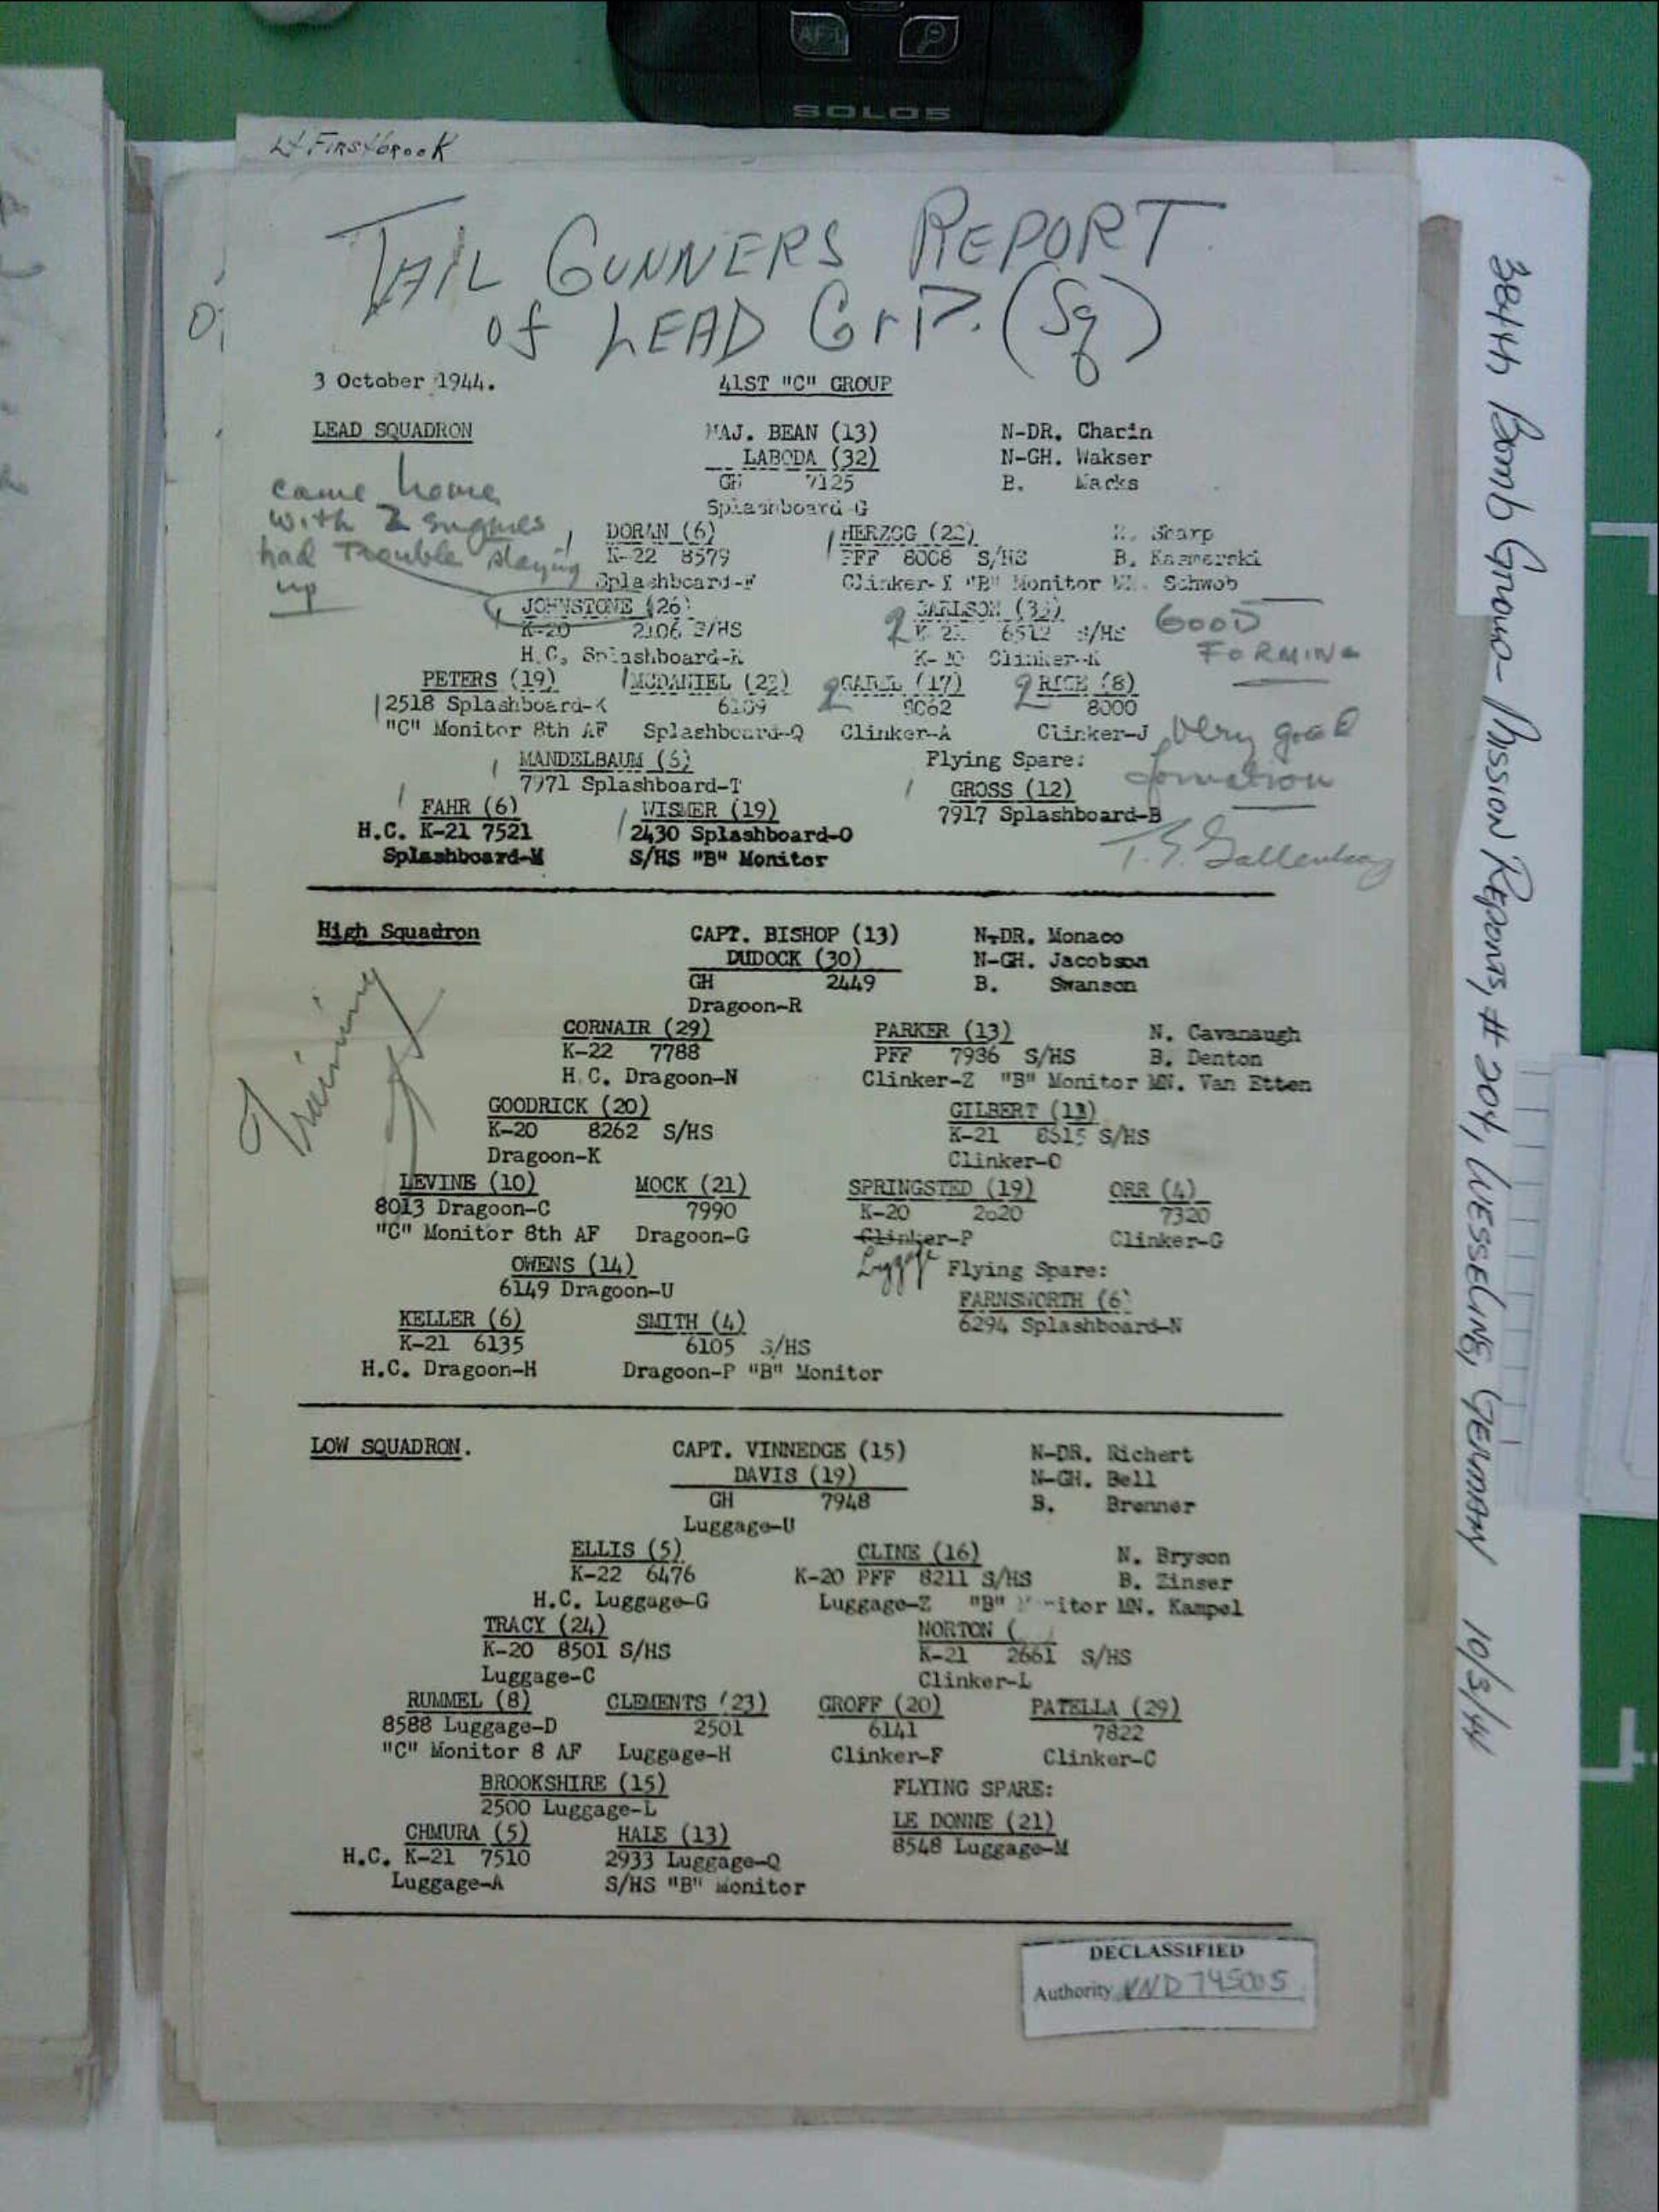 AF-L
SOLO5
Lt Firstbrook
TAIL GUNNERS REPORT
of LEAD GrP. (Sq)
3 October 1944. 41ST "C" GROUP
LEAD SQUADRON MAJ. BEAN (13) N-DR. Charin
LABODA (32) N-GH. Wakser
GH 7125 B. Macks
Splashboard-G
came home
with 2 engines
had Trouble staying
up
DORAN (6) HERZOG (22) N. Sharp
K-22 8579 PFF 8008 S/HS B. Kazmerski
Splashboard-F Clinker- "B" Monitor MN. Schwob
JOHNSTONE (26) CARLSON (33)
K-20 2106 S/HS 2 K-21 6512 S/HS
GOOD
FORMING
H.C. Splashboard- K-20 Clinker-K
PETERS (19) MCDANIEL (22) 2 (17) 2 RICE (8)
2518 Splashboard-K 6109 9062 8000
"C" Monitor 8th AF Splashboard-Q Clinker-A Clinker-J
very good
formation
MANDELBAUM (5) Flying Spare:
7971 Splashboard-T GROSS (12)
FAHR (6) WISMER (19) 7917 Splashboard-B
H.C. K-21 7521 2430 Splashboard-O
Splashboard-M S/HS "B" Monitor
High Squadron CAPT. BISHOP (13) N-DR. Monaco
DUDOCK (30) N-GH. Jacobson
GH 2449 B. Swanson
Dragoon-R
Training
CORNAIR (29) PARKER (13) N. Cavanaugh
K-22 7788 PFF 7936 S/HS B. Denton
H.C. Dragoon-N Clinker-Z "B" Monitor MN. Van Etten
GOODRICK (20) GILBERT (13)
K-20 8262 S/HS K-21 8515 S/HS
Dragoon-K Clinker-O
LEVINE (10) MOCK (21) SPRINGSTED (19) ORR (4)
8013 Dragoon-C 7990 K-20 2020 7320
"C" Monitor 8th AF Dragoon-G Clinker-P Clinker-G
OWENS (14) Luggage Flying Spare:
6149 Dragoon-U FARNSWORTH (6)
KELLER (6) SMITH (4) 6294 Splashboard-N
K-21 6135 6105 S/HS
H.C. Dragoon-H Dragoon-P "B" Monitor
LOW SQUADRON. CAPT. VINNEDGE (15) N-DR. Richert
DAVIS (19) N-GH. Bell
GH 7948 B. Brenner
Luggage-U
ELLIS (5) CLINE (16) N. Bryson
K-22 6476 K-20 PFF 8211 S/HS B. Zinser
H.C. Luggage-G Luggage-Z "B" Monitor MN. Kampel
TRACY (24) NORTON (
K-20 8501 S/HS K-21 2661 S/HS
Luggage-C Clinker-L
RUMMEL (8) CLEMENTS (23) GROFF (20) PATELLA (29)
8588 Luggage-D 2501 6141 7822
"C" Monitor 8 AF Luggage-H Clinker-F Clinker-C
BROOKSHIRE (15) FLYING SPARE:
2500 Luggage-L LE DONNE (21)
CHMURA (5) HALE (13) 8548 Luggage-M
H.C. K-21 7510 2933 Luggage-Q
Luggage-A S/HS "B" Monitor
DECLASSIFIED
Authority NND 745005
384th Bomb Group - Mission Reports, # 204, WESSELING, GERMANY 10/3/44